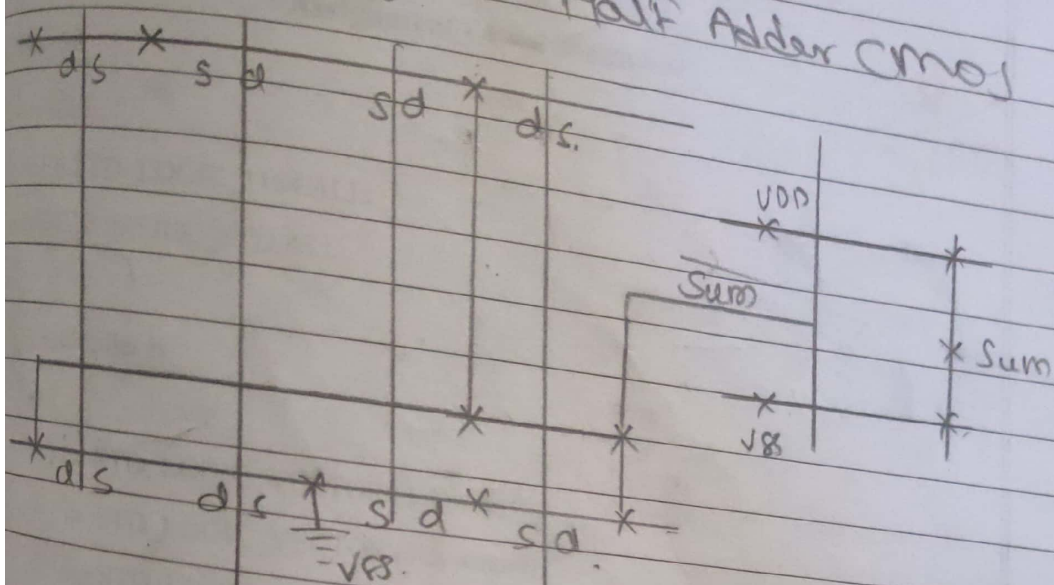 Half Adder CMOS
d s
s d
s d
d s.
VDD
Sum
Sum
VSS
d s
d s
s d
s d
VSS.